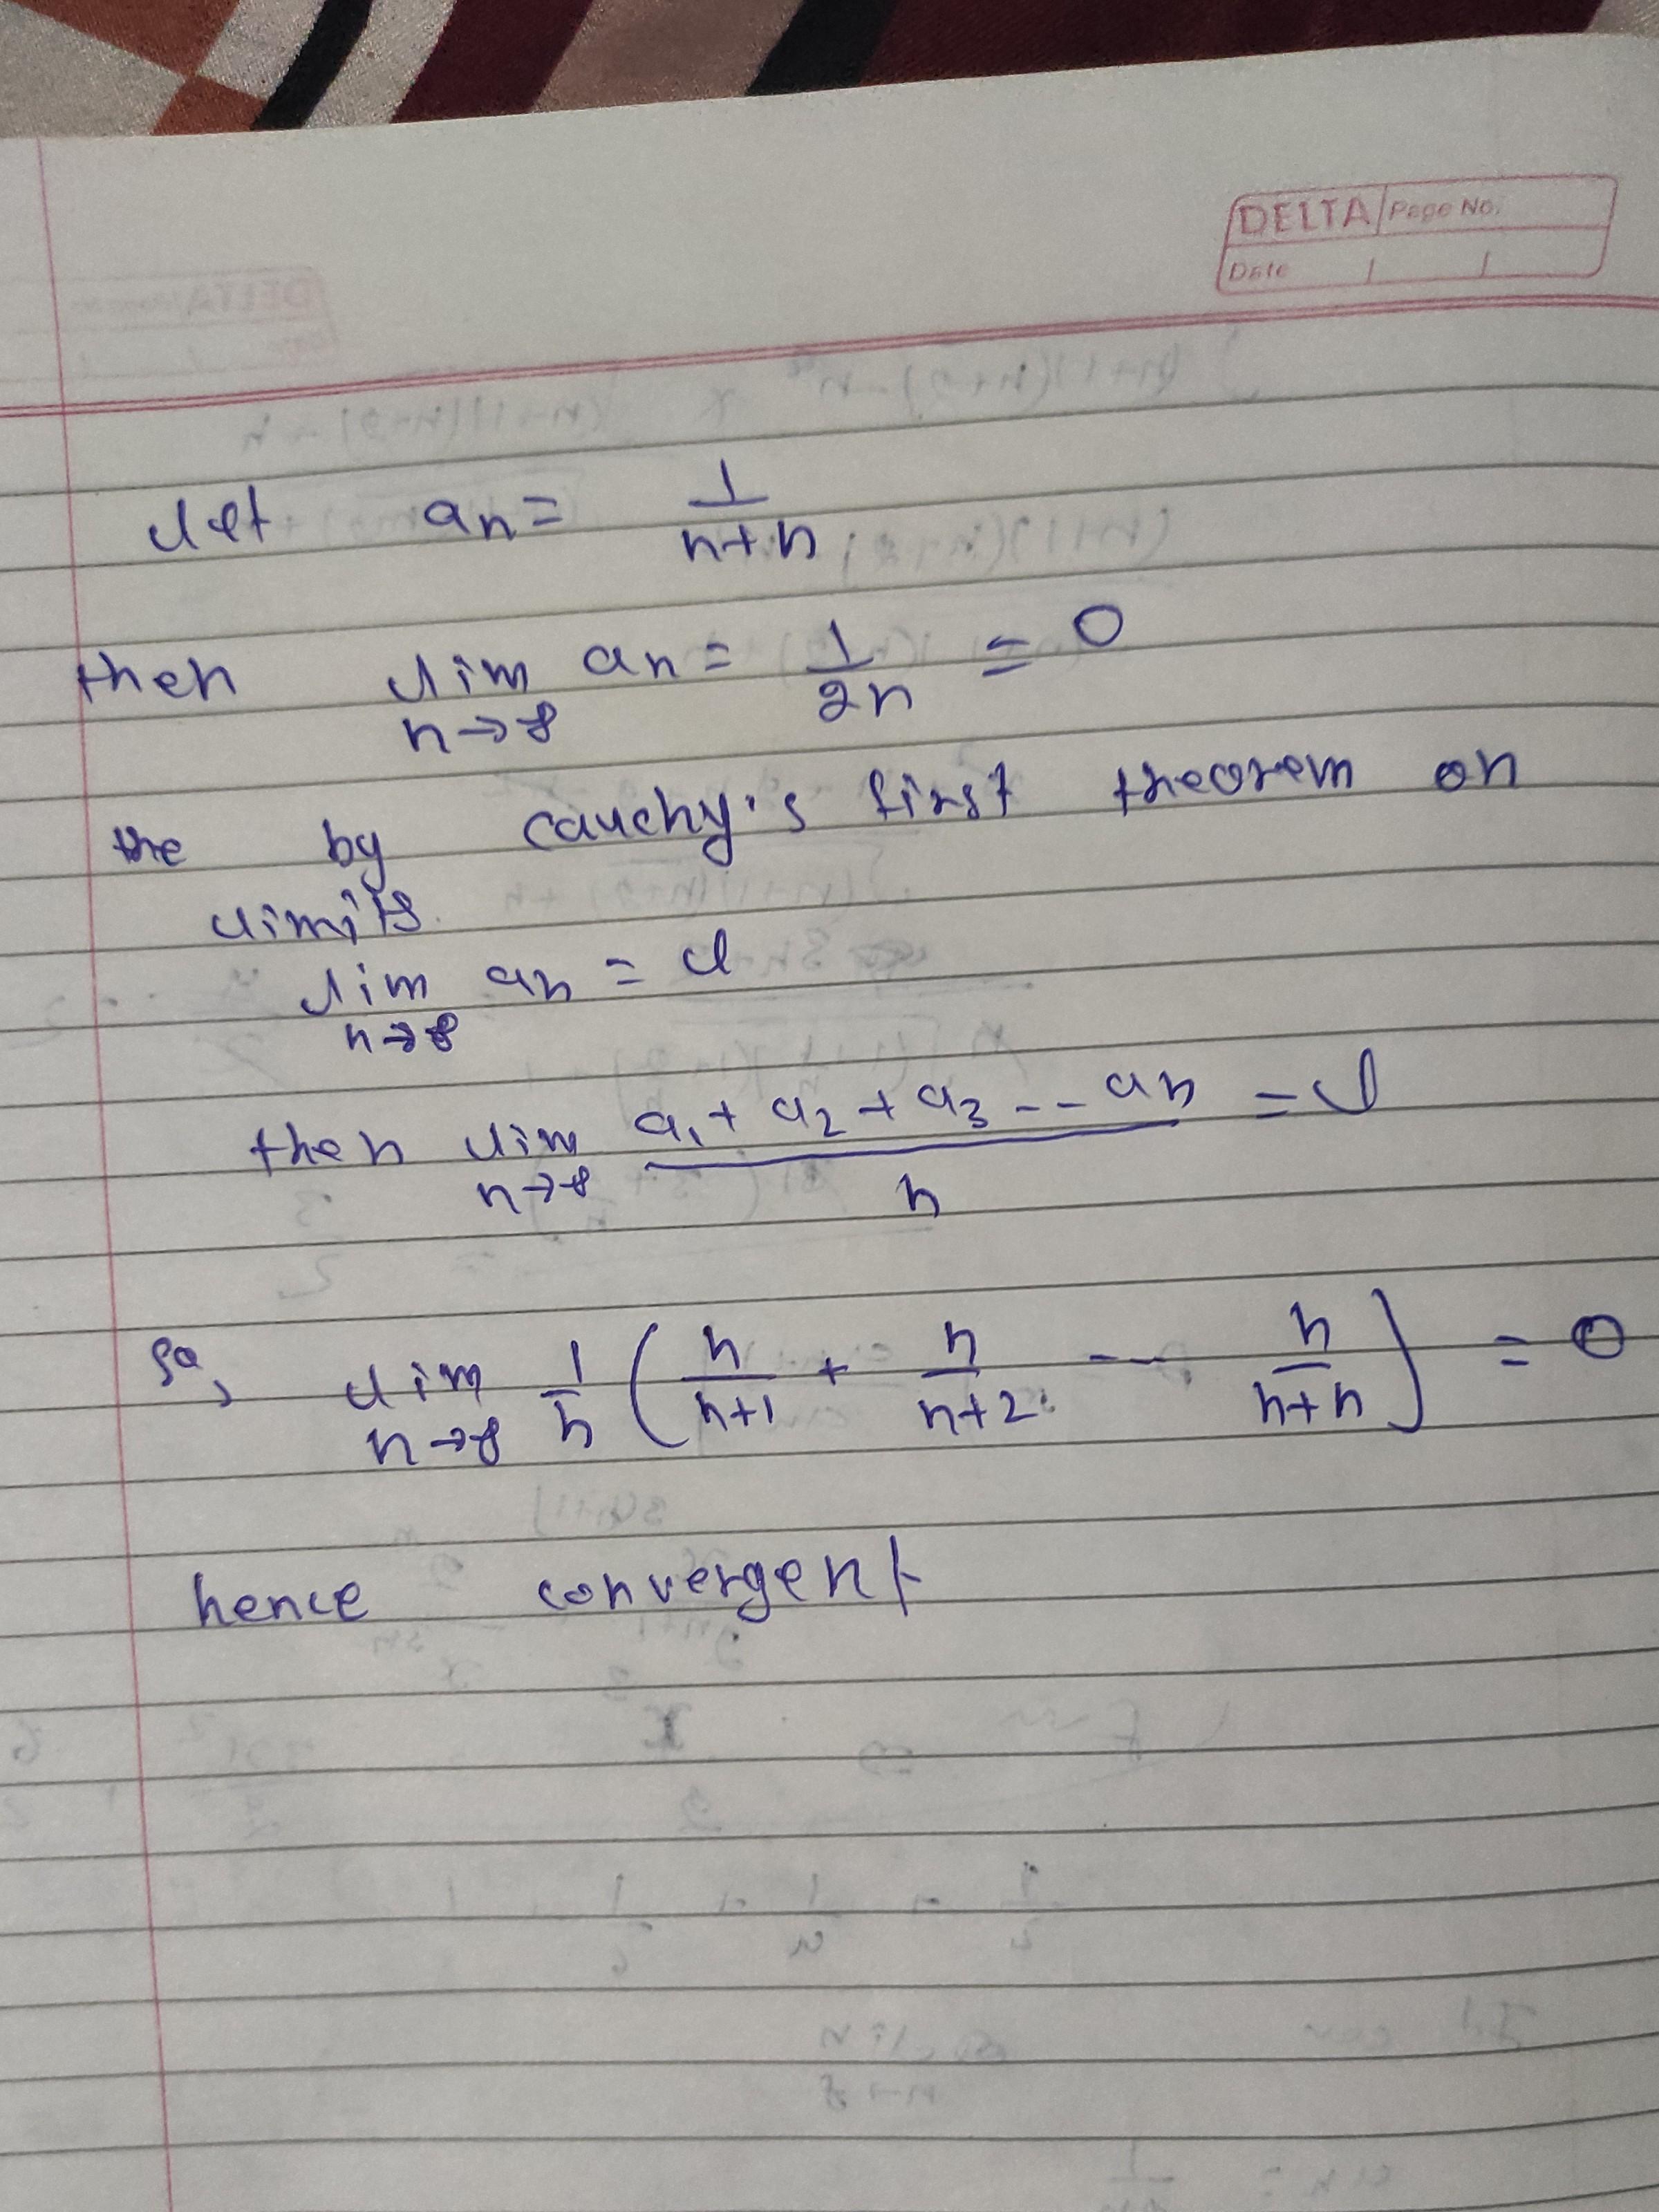 DELTA Page No.
Date / /
let an = 1/(n+n)
then lim n→∞ an = 1/2n = 0
the by cauchy's first theorem on
limits.
lim n→∞ an = l
then lim n→∞ (a1 + a2 + a3 -- an)/n = l
so, lim n→∞ 1/n (n/(n+1) + n/(n+2) -- n/(n+n)) = 0
hence convergent